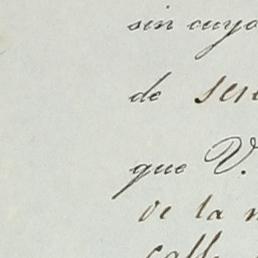 sin cuyo
de sere
que V.
de la
calle